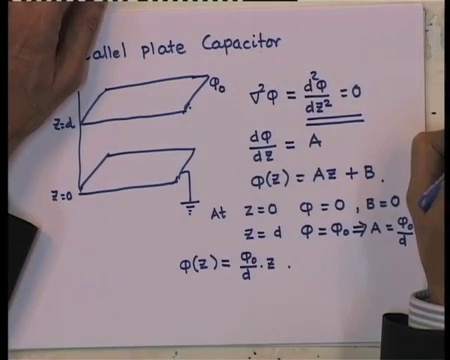 allel plate Capacitor
φ₀
∇²φ = d²φ/dz² = 0
z=d
dφ/dz = A
φ(z) = Az + B.
z=0
At z=0 φ=0, B=0
z=d φ=φ₀ ⇒ A = φ₀/d
φ(z) = φ₀/d · z .